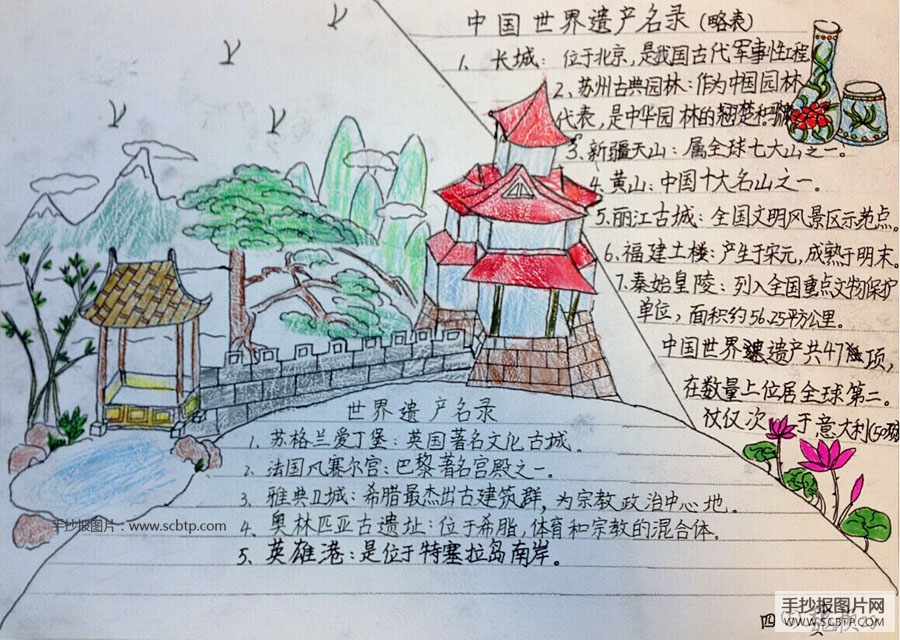 中国世界遗产名录(略表)
1、长城：位于北京，是我国古代军事性工程
2、苏州古典园林：作为中国园林
代表，是中华园林的翘楚和
3、新疆天山：属全球七大山之一。
4、黄山：中国十大名山之一。
5、丽江古城：全国文明风景区示范点。
6、福建土楼：产生于宋元，成熟于明末。
7、秦始皇陵：列入全国重点文物保护
单位，面积约56.25平方公里。
中国世界遗产共47项，
在数量上位居全球第二。
仅仅次于意大利(50项
世界遗产名录
1、苏格兰爱丁堡：英国著名文化古城。
2、法国凡赛尔宫：巴黎著名宫殿之一。
3、雅典卫城：希腊最杰出古建筑群，为宗教政治中心地。
4、奥林匹亚古遗址：位于希腊，体育和宗教的混合体。
5、英雄港：是位于特塞拉岛南岸。
手抄报图片：www.scbtp.com
手抄报图片网
WWW.SCBTP.COM
四